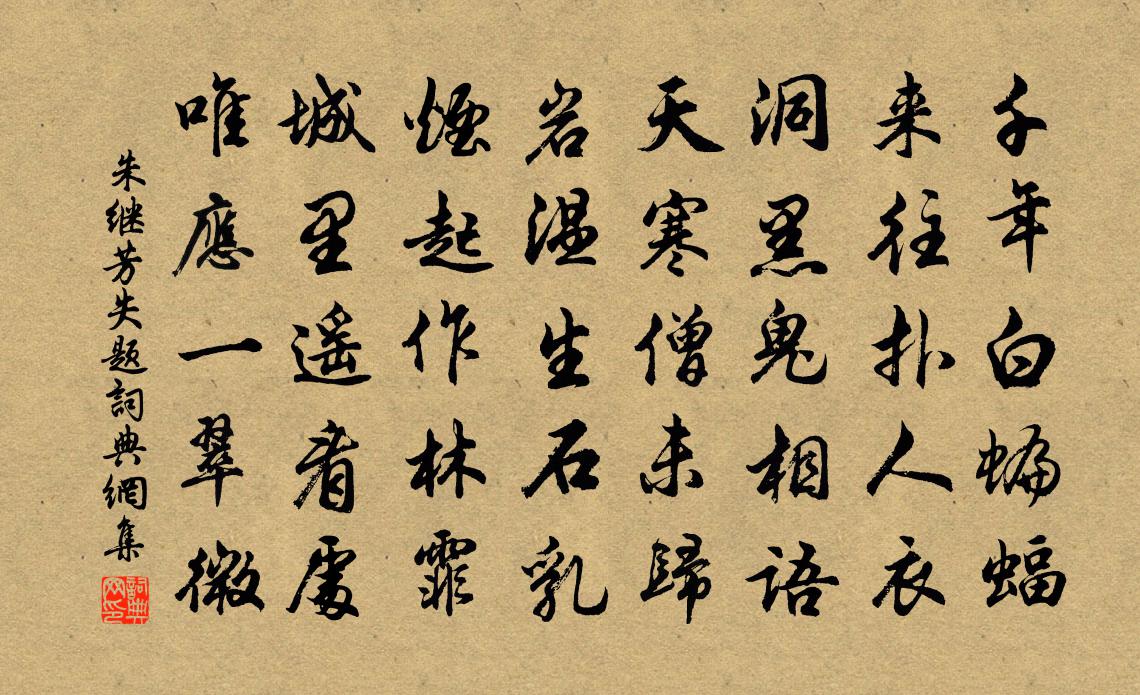 千年白蝙蝠
来往扑人衣
洞黑鬼相语
天寒僧未歸
岩湿生石乳
煙起作林霏
城里遥看處
唯應一翠微
朱继芳失题詞典網集
詞典网印